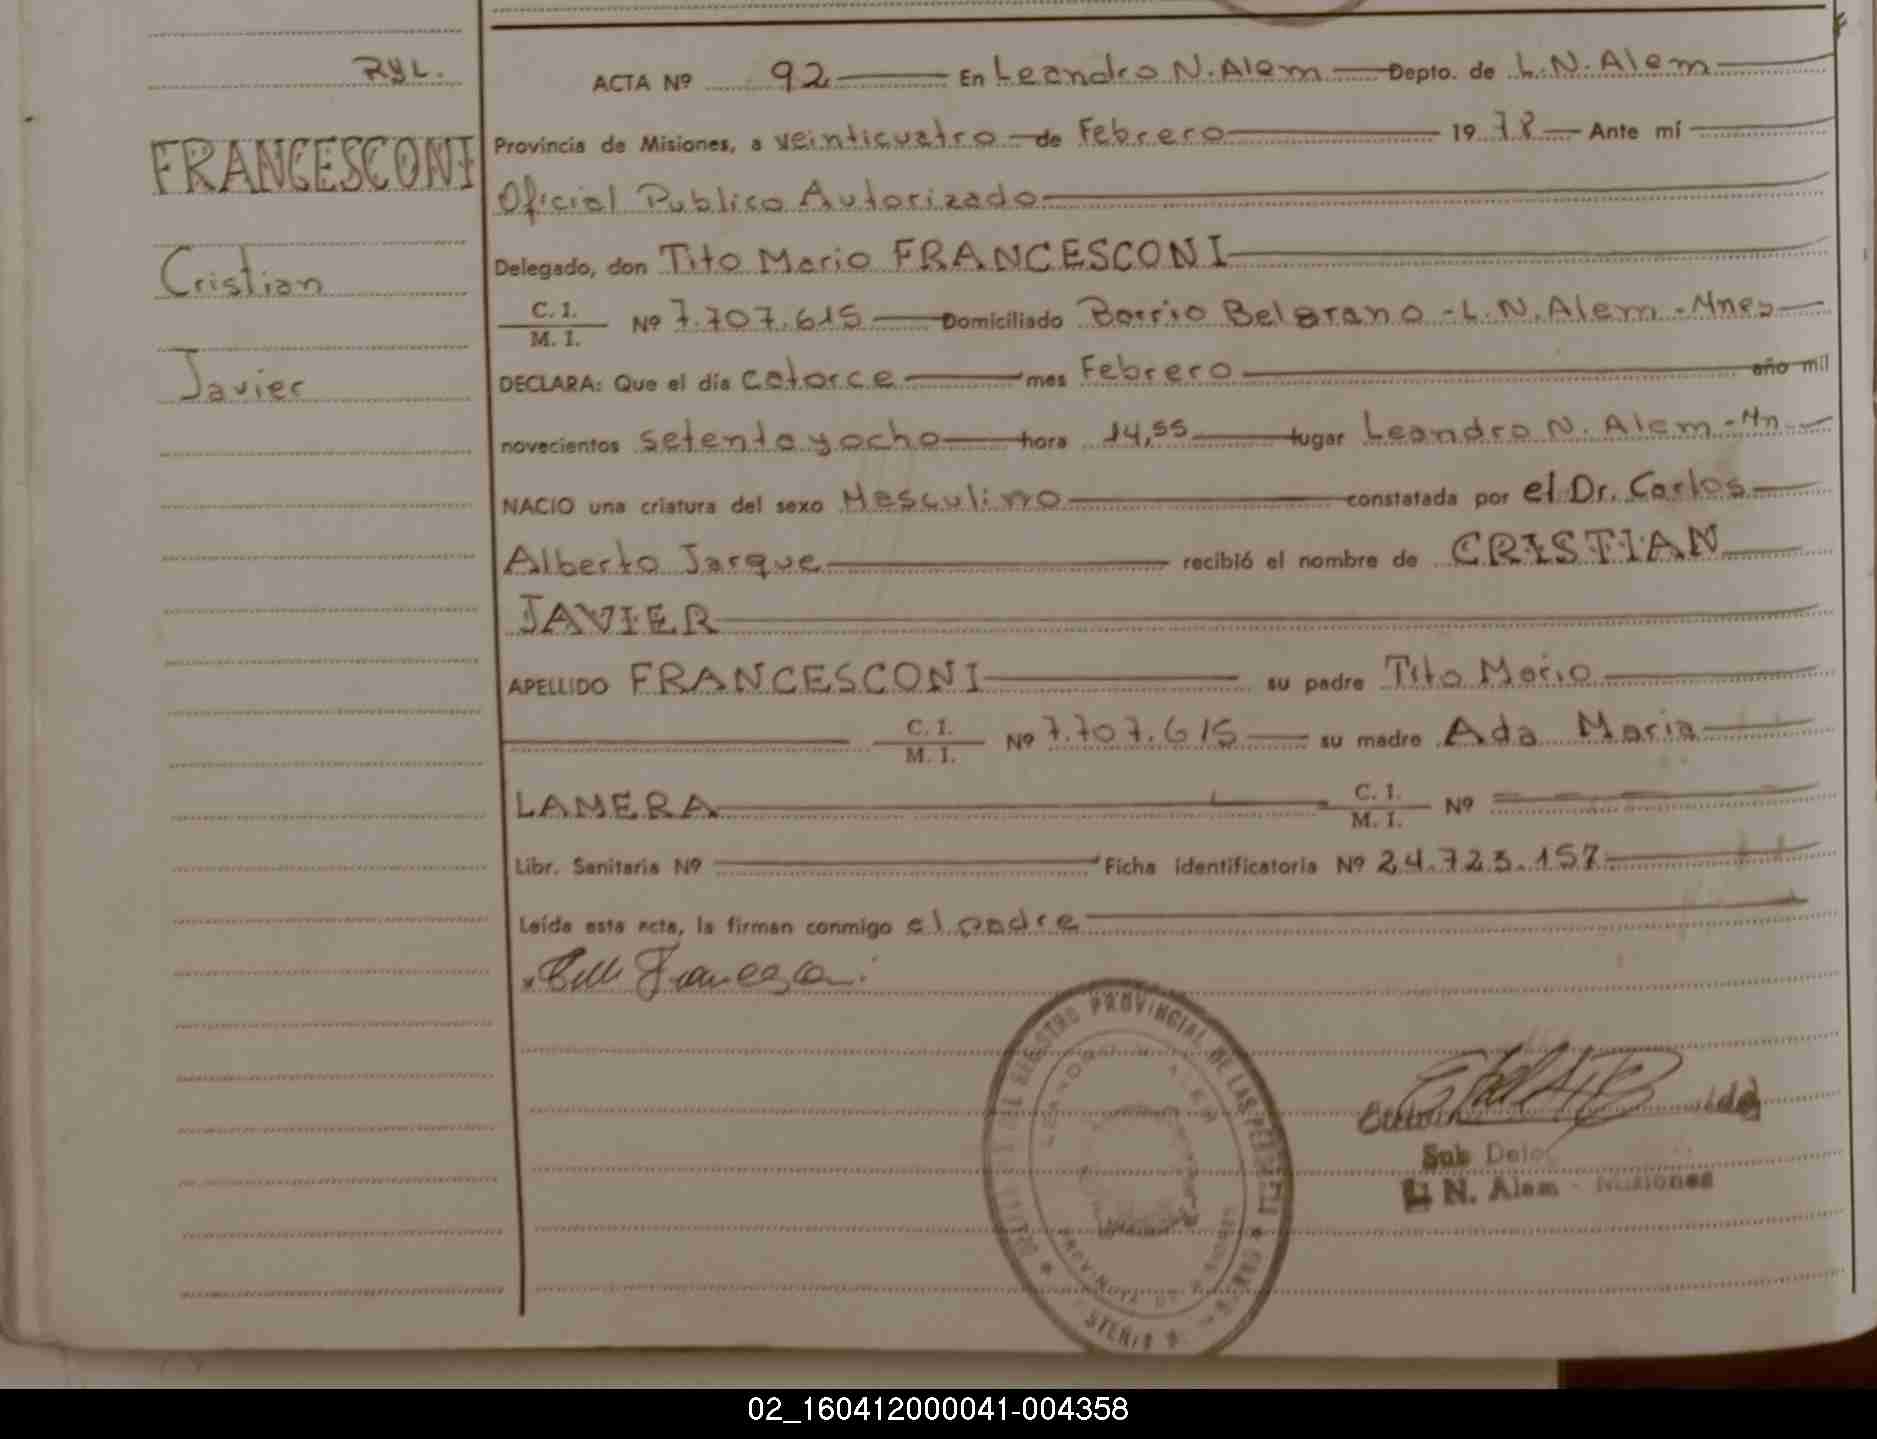 RyL.
FRANCESCONI
Cristian
Javier
ACTA Nº 92 En Leandro N. Alem Depto. de L.N. Alem
Provincia de Misiones, a veinticuatro de Febrero 1978 Ante mí
Oficial Publico Autorizado
Delegado, don Tito Mario FRANCESCONI
C. I.
M. I. Nº 7.707.615 Domiciliado Barrio Belgrano - L.N. Alem - Mnes
DECLARA: Que el día catorce mes Febrero año mil
novecientos setenta y ocho hora 14,55 lugar Leandro N. Alem - Mn
NACIO una criatura del sexo Masculino constatada por el Dr. Carlos
Alberto Jarque recibió el nombre de CRISTIAN
JAVIER
APELLIDO FRANCESCONI su padre Tito Mario
C. I.
M. I. Nº 7.707.615 su madre Ada Maria
LAMERA C. I.
M. I. Nº
Libr. Sanitaria Nº Ficha identificatoria Nº 24.723.157
Leída esta acta, la firman conmigo el padre
REGISTRO PROVINCIAL DE LAS PERSONAS
LEANDRO N. ALEM
PROVINCIA DE MISIONES
Sub
L. N. Alem - Misiones
02_160412000041-004358